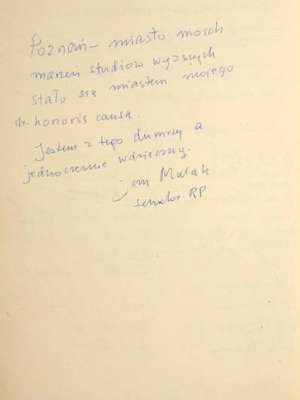 Poznań – miasto moich
marzeń studiów wyższych
stało się miastem mojego
dr. honoris causa.
Jestem z tego dumny a
jednocześnie wdzięczny.
Senator RP